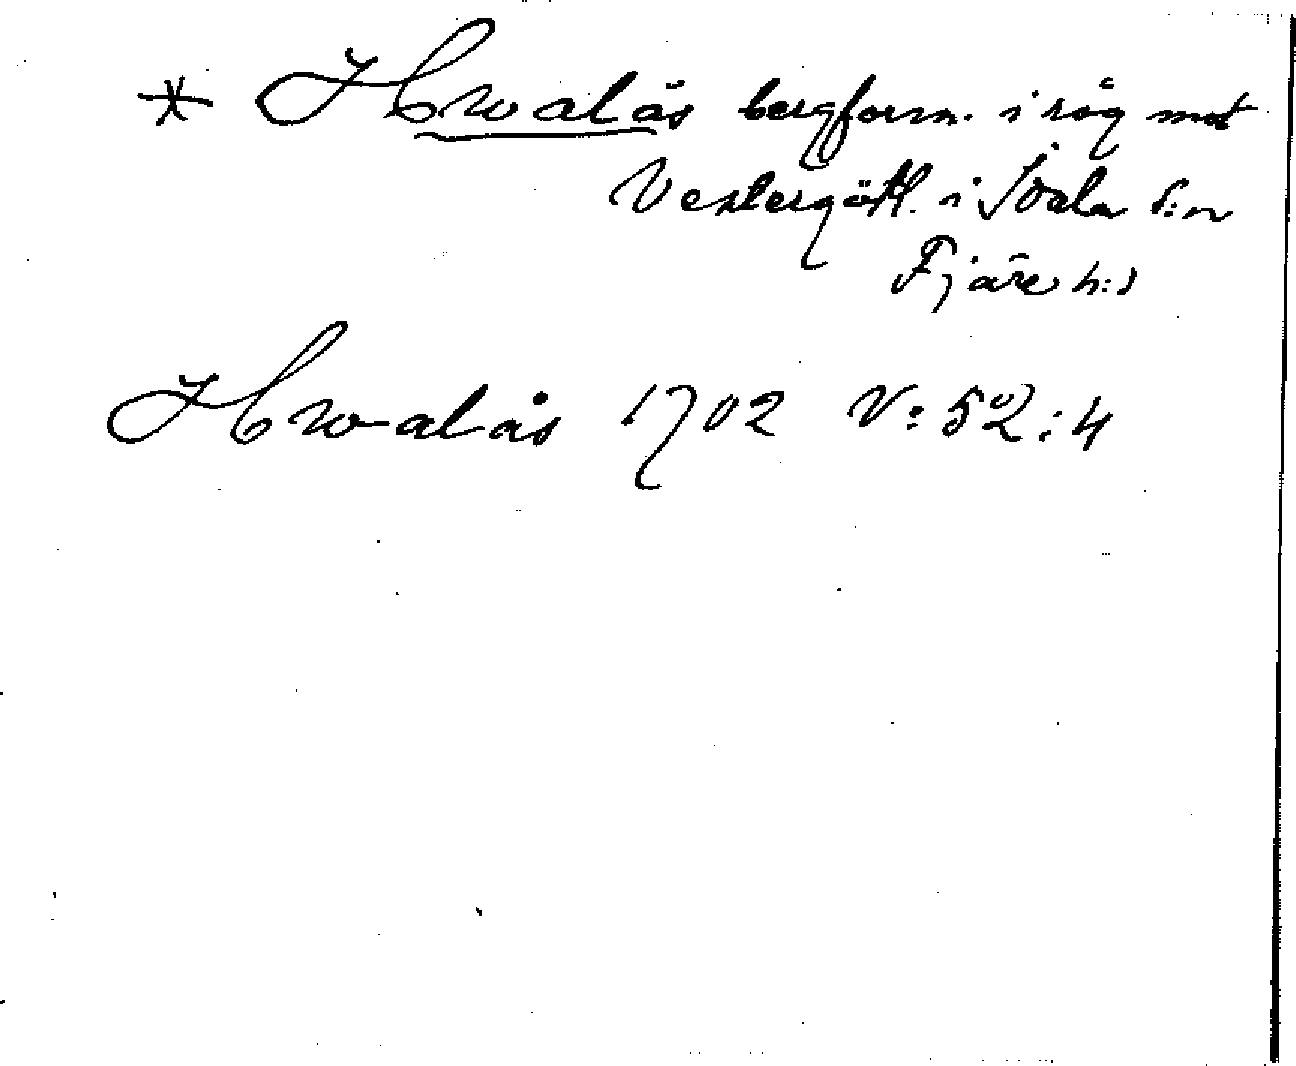 * Hwalås bergform. i råg mot
Vestergötl. i Idala s:n
Fjäre h:d
Hwalås 1702 V: 52: 4